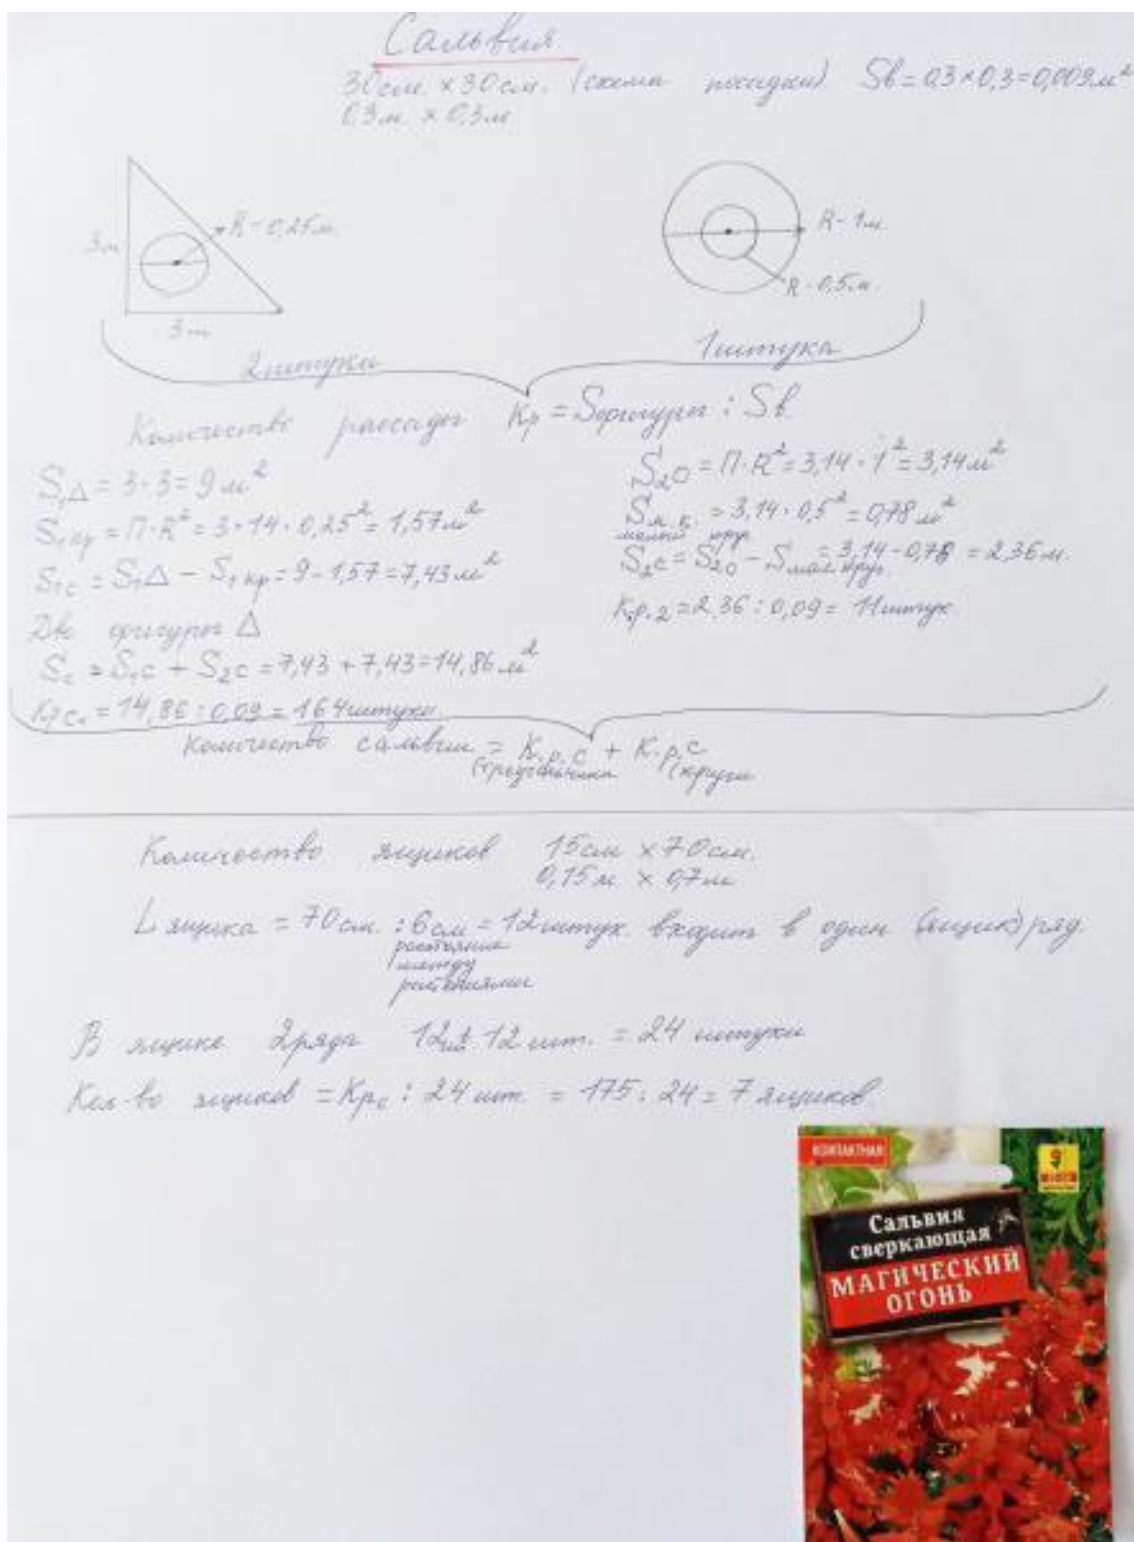 Сальвия
30см. х 30см. (схема посадки) Sв = 0,3 × 0,3 = 0,009м²
0,3м. × 0,3м
3м
R - 0,25м.
3м
R - 1м.
R - 0,5м.
2 штуки
1 штука
Количество рассады Кр = Sфигуры : Sв
S₁△ = 3 · 3 = 9 м²
S₁кр = П·R² = 3 · 14 · 0,25² = 1,57м²
S₁с = S₁△ – S₁кр = 9 - 1,57 = 7,43м²
Две фигуры △
Sс = S₁с + S₂с = 7,43 + 7,43 = 14,86 м²
Крс. = 14,86 : 0,09 = 164штуки
S₂О = П·R² = 3,14 · 1² = 3,14м²
Sм.к. = 3,14 · 0,5² = 0,78 м²
малый круг
S₂с = S₂О – Sмал.круг. = 3,14 - 0,78 = 2,36м.
К.р.2 = 2,36 : 0,09 = 11штук
Количество сальвии = К.р.с + К.р.с
(треугольники (круги
Количество ящиков 15см х 70см.
0,15м х 0,7м
L ящика = 70см. : 6см = 12штук. входит в один (ящик) ряд
растояние
между
растениями
В ящике 2ряда 12шт + 12 шт. = 24 штуки
Кол-во ящиков = Крс : 24 шт. = 175 : 24 = 7 ящиков.
КОМПАКТНАЯ
Сальвия
сверкающая
МАГИЧЕСКИЙ
ОГОНЬ